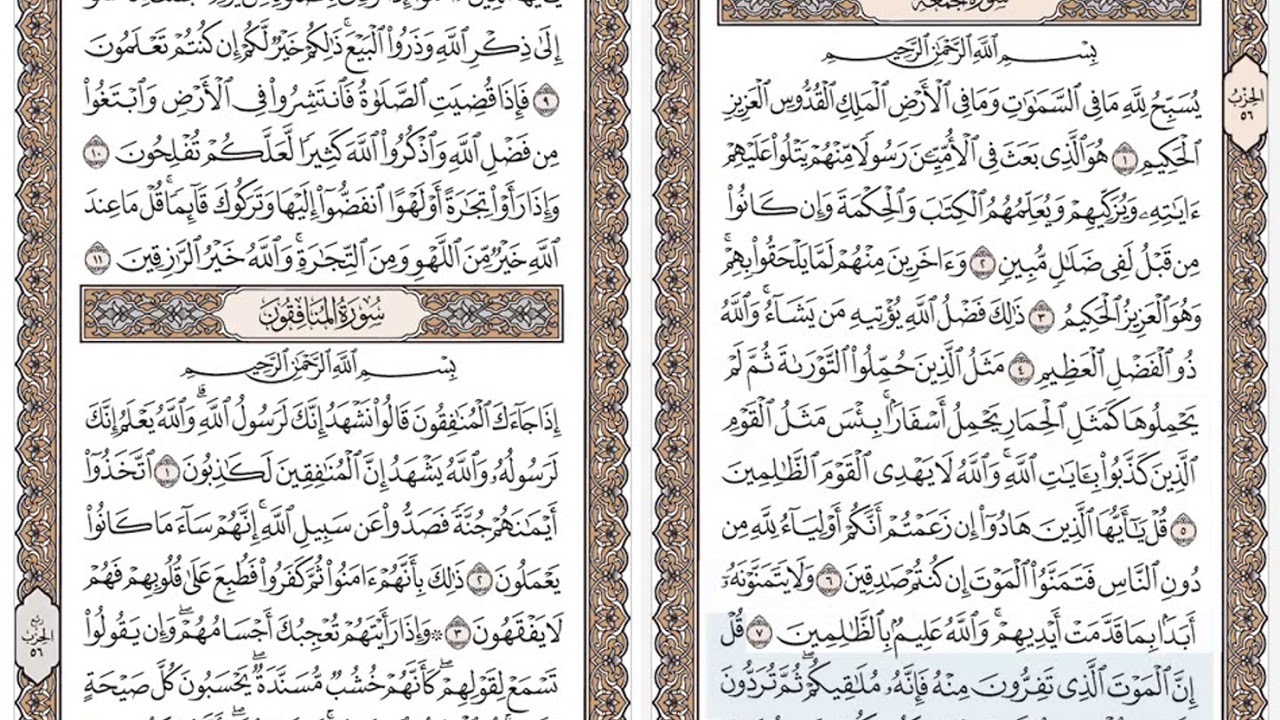 سُورَةُ الجُمُعَةِ
بِسْمِ ٱللَّهِ ٱلرَّحْمَٰنِ ٱلرَّحِيمِ
يُسَبِّحُ لِلَّهِ مَا فِي ٱلسَّمَٰوَٰتِ وَمَا فِي ٱلْأَرْضِ ٱلْمَلِكِ ٱلْقُدُّوسِ ٱلْعَزِيزِ
ٱلْحَكِيمِ ١ هُوَ ٱلَّذِي بَعَثَ فِي ٱلْأُمِّيِّـۧنَ رَسُولًا مِّنْهُمْ يَتْلُوا۟ عَلَيْهِمْ
ءَايَٰتِهِۦ وَيُزَكِّيهِمْ وَيُعَلِّمُهُمُ ٱلْكِتَٰبَ وَٱلْحِكْمَةَ وَإِن كَانُوا۟
مِن قَبْلُ لَفِي ضَلَٰلٍ مُّبِينٍ ٢ وَءَاخَرِينَ مِنْهُمْ لَمَّا يَلْحَقُوا۟ بِهِمْ ۚ
وَهُوَ ٱلْعَزِيزُ ٱلْحَكِيمُ ٣ ذَٰلِكَ فَضْلُ ٱللَّهِ يُؤْتِيهِ مَن يَشَآءُ ۚ وَٱللَّهُ
ذُو ٱلْفَضْلِ ٱلْعَظِيمِ ٤ مَثَلُ ٱلَّذِينَ حُمِّلُوا۟ ٱلتَّوْرَىٰةَ ثُمَّ لَمْ
يَحْمِلُوهَا كَمَثَلِ ٱلْحِمَارِ يَحْمِلُ أَسْفَارًۢا ۚ بِئْسَ مَثَلُ ٱلْقَوْمِ
ٱلَّذِينَ كَذَّبُوا۟ بِـَٔايَٰتِ ٱللَّهِ ۚ وَٱللَّهُ لَا يَهْدِي ٱلْقَوْمَ ٱلظَّٰلِمِينَ
٥ قُلْ يَٰٓأَيُّهَا ٱلَّذِينَ هَادُوٓا۟ إِن زَعَمْتُمْ أَنَّكُمْ أَوْلِيَآءُ لِلَّهِ مِن
دُونِ ٱلنَّاسِ فَتَمَنَّوُا۟ ٱلْمَوْتَ إِن كُنتُمْ صَٰدِقِينَ ٦ وَلَا يَتَمَنَّوْنَهُۥٓ
أَبَدًۢا بِمَا قَدَّمَتْ أَيْدِيهِمْ ۚ وَٱللَّهُ عَلِيمٌۢ بِٱلظَّٰلِمِينَ ٧ قُلْ
إِنَّ ٱلْمَوْتَ ٱلَّذِي تَفِرُّونَ مِنْهُ فَإِنَّهُۥ مُلَٰقِيكُمْ ۖ ثُمَّ تُرَدُّونَ
الحِزْبُ
٥٦
إِلَىٰ ذِكْرِ ٱللَّهِ وَذَرُوا۟ ٱلْبَيْعَ ۚ ذَٰلِكُمْ خَيْرٌ لَّكُمْ إِن كُنتُمْ تَعْلَمُونَ
٩ فَإِذَا قُضِيَتِ ٱلصَّلَوٰةُ فَٱنتَشِرُوا۟ فِي ٱلْأَرْضِ وَٱبْتَغُوا۟
مِن فَضْلِ ٱللَّهِ وَٱذْكُرُوا۟ ٱللَّهَ كَثِيرًا لَّعَلَّكُمْ تُفْلِحُونَ ١٠
وَإِذَا رَأَوْا۟ تِجَٰرَةً أَوْ لَهْوًا ٱنفَضُّوٓا۟ إِلَيْهَا وَتَرَكُوكَ قَآئِمًا ۚ قُلْ مَا عِندَ
ٱللَّهِ خَيْرٌ مِّنَ ٱللَّهْوِ وَمِنَ ٱلتِّجَٰرَةِ ۚ وَٱللَّهُ خَيْرُ ٱلرَّٰزِقِينَ ١١
سُورَةُ المُنَافِقُونَ
بِسْمِ ٱللَّهِ ٱلرَّحْمَٰنِ ٱلرَّحِيمِ
إِذَا جَآءَكَ ٱلْمُنَٰفِقُونَ قَالُوا۟ نَشْهَدُ إِنَّكَ لَرَسُولُ ٱللَّهِ ۗ وَٱللَّهُ يَعْلَمُ إِنَّكَ
لَرَسُولُهُۥ وَٱللَّهُ يَشْهَدُ إِنَّ ٱلْمُنَٰفِقِينَ لَكَٰذِبُونَ ١ ٱتَّخَذُوٓا۟
أَيْمَٰنَهُمْ جُنَّةً فَصَدُّوا۟ عَن سَبِيلِ ٱللَّهِ ۚ إِنَّهُمْ سَآءَ مَا كَانُوا۟
يَعْمَلُونَ ٢ ذَٰلِكَ بِأَنَّهُمْ ءَامَنُوا۟ ثُمَّ كَفَرُوا۟ فَطُبِعَ عَلَىٰ قُلُوبِهِمْ فَهُمْ
لَا يَفْقَهُونَ ٣ ۞ وَإِذَا رَأَيْتَهُمْ تُعْجِبُكَ أَجْسَامُهُمْ ۖ وَإِن يَقُولُوا۟
تَسْمَعْ لِقَوْلِهِمْ ۖ كَأَنَّهُمْ خُشُبٌ مُّسَنَّدَةٌ ۖ يَحْسَبُونَ كُلَّ صَيْحَةٍ
رُبع
الحِزْبُ
٥٦